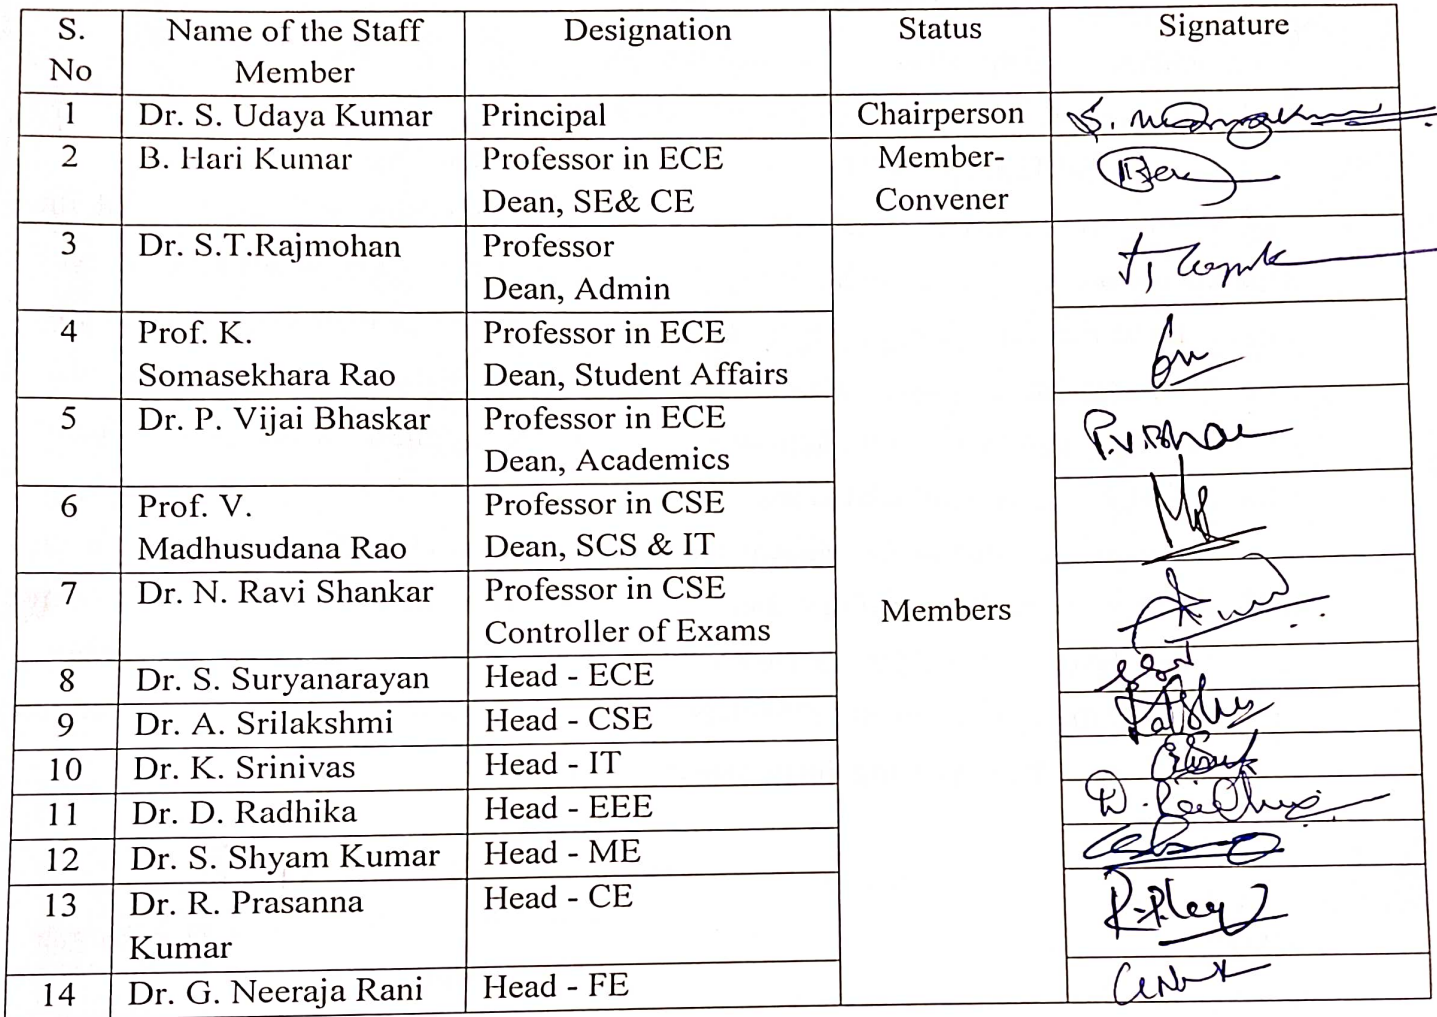 S. No | Name of the Staff Member | Designation | Status | Signature
1 | Dr. S. Udaya Kumar | Principal | Chairperson
2 | B. Hari Kumar | Professor in ECE
Dean, SE& CE | Member-
Convener
3 | Dr. S.T.Rajmohan | Professor
Dean, Admin | Members
4 | Prof. K.
Somasekhara Rao | Professor in ECE
Dean, Student Affairs
5 | Dr. P. Vijai Bhaskar | Professor in ECE
Dean, Academics
6 | Prof. V.
Madhusudana Rao | Professor in CSE
Dean, SCS & IT
7 | Dr. N. Ravi Shankar | Professor in CSE
Controller of Exams
8 | Dr. S. Suryanarayan | Head - ECE
9 | Dr. A. Srilakshmi | Head - CSE
10 | Dr. K. Srinivas | Head - IT
11 | Dr. D. Radhika | Head - EEE
12 | Dr. S. Shyam Kumar | Head - ME
13 | Dr. R. Prasanna
Kumar | Head - CE
14 | Dr. G. Neeraja Rani | Head - FE